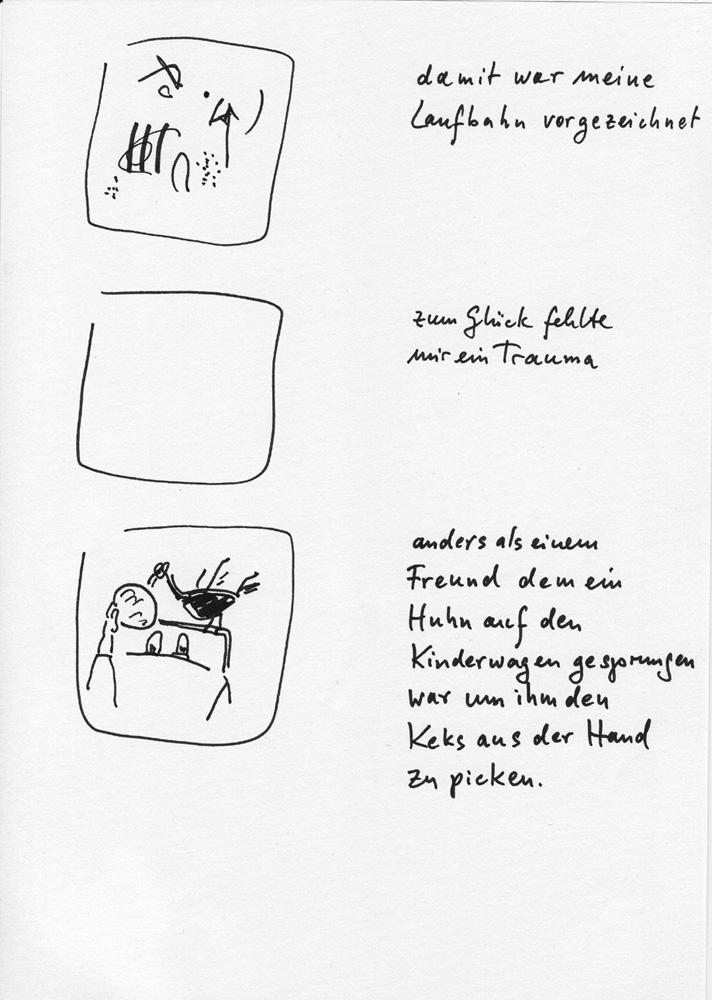 damit war meine
Laufbahn vorgezeichnet
zum Glück fehlte
mir ein Trauma
anders als einem
Freund dem ein
Huhn auf den
Kinderwagen gesprungen
war um ihm den
Keks aus der Hand
zu picken.